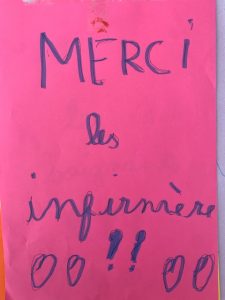 MERCI
les
infirmière
00 !! 00